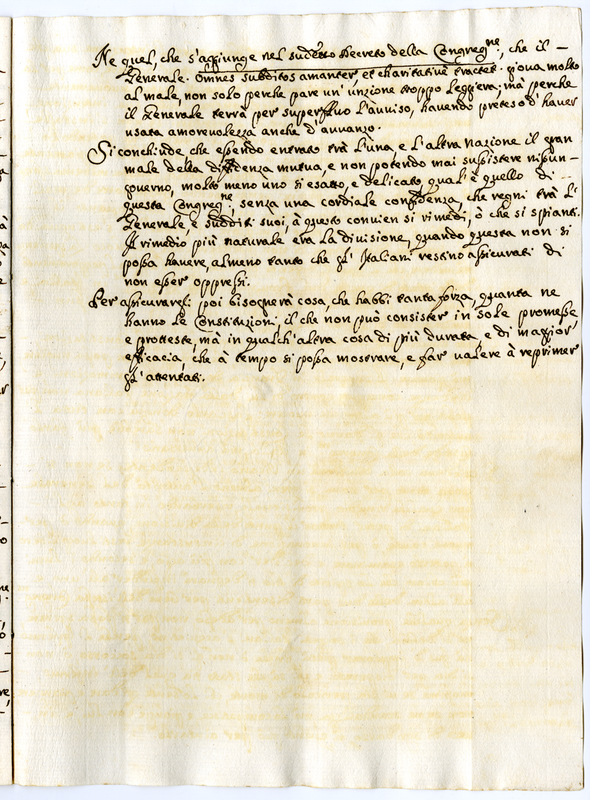 Ne quel, che s'aggiunge nel sud.to Decreto della Congreg.ne, che il —
Generale. Omnes subditos amanter, et charitativè tractet. giova molto
al male, non solo perche pare un' unzione troppo leggiera; mà perche
il Generale terrà per superfluo l'avviso, havendo preteso d'haver
usata amorevolezza anche d'avvanzo.
Si conchiude che essendo entrato trà l'una, e l'altra nazione il gran
male della diffidenza mutua, e non potendo mai sussistere nissun —
governo, molto meno uno sì esatto, e delicato qual'è quello di
questa Congreg.ne, senza una cordiale confidenza, che regni trà l'
Generale e sudditi suoi, à questo convien si rimedi, ò che si spianti.
Il rimedio più naturale era la divisione, quando questa non si
possa havere, almeno tanto che gl' Italiani restino assicurati di
non esser oppressi.
Per assicurargli poi bisognerà cosa, che habbi tanta forza, quanta ne
hanno le Constituzioni, il che non può consister in sole promesse,
e proteste, mà in qualch'altra cosa di più durata, e di maggior
efficacia, che à tempo si possa mostrare, e far valere à reprimer
gl' attentati.